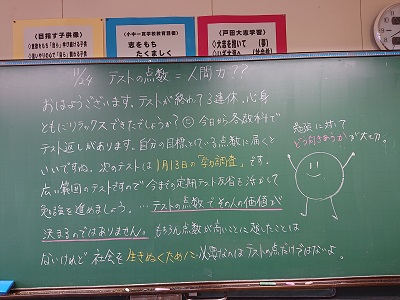 目指す子供像
小中一貫学校教育目標
志をもち
たくましく
戸田大志学習
大志を抱いて (夢)
11/24 テストの点数 = 人間力??
おはようございます。テストが終わって3連休、心身
ともにリラックスできたでしょうか? 今日から各教科で
テスト返しがあります。自分の目標としている点数に届くと
いいですね。次のテストは1月13日の「学力調査」です。
広い範囲のテストですので今までの定期テスト反省も活かして
勉強を進めましょう。…テストの点数でその人の価値が
決まるのではありません。もちろん点数が高いことに越したことは
ないけれど 社会を生きぬくために必要なのはテストの点だけではないよ。
勉強に対して
どう向きあうかが大切。